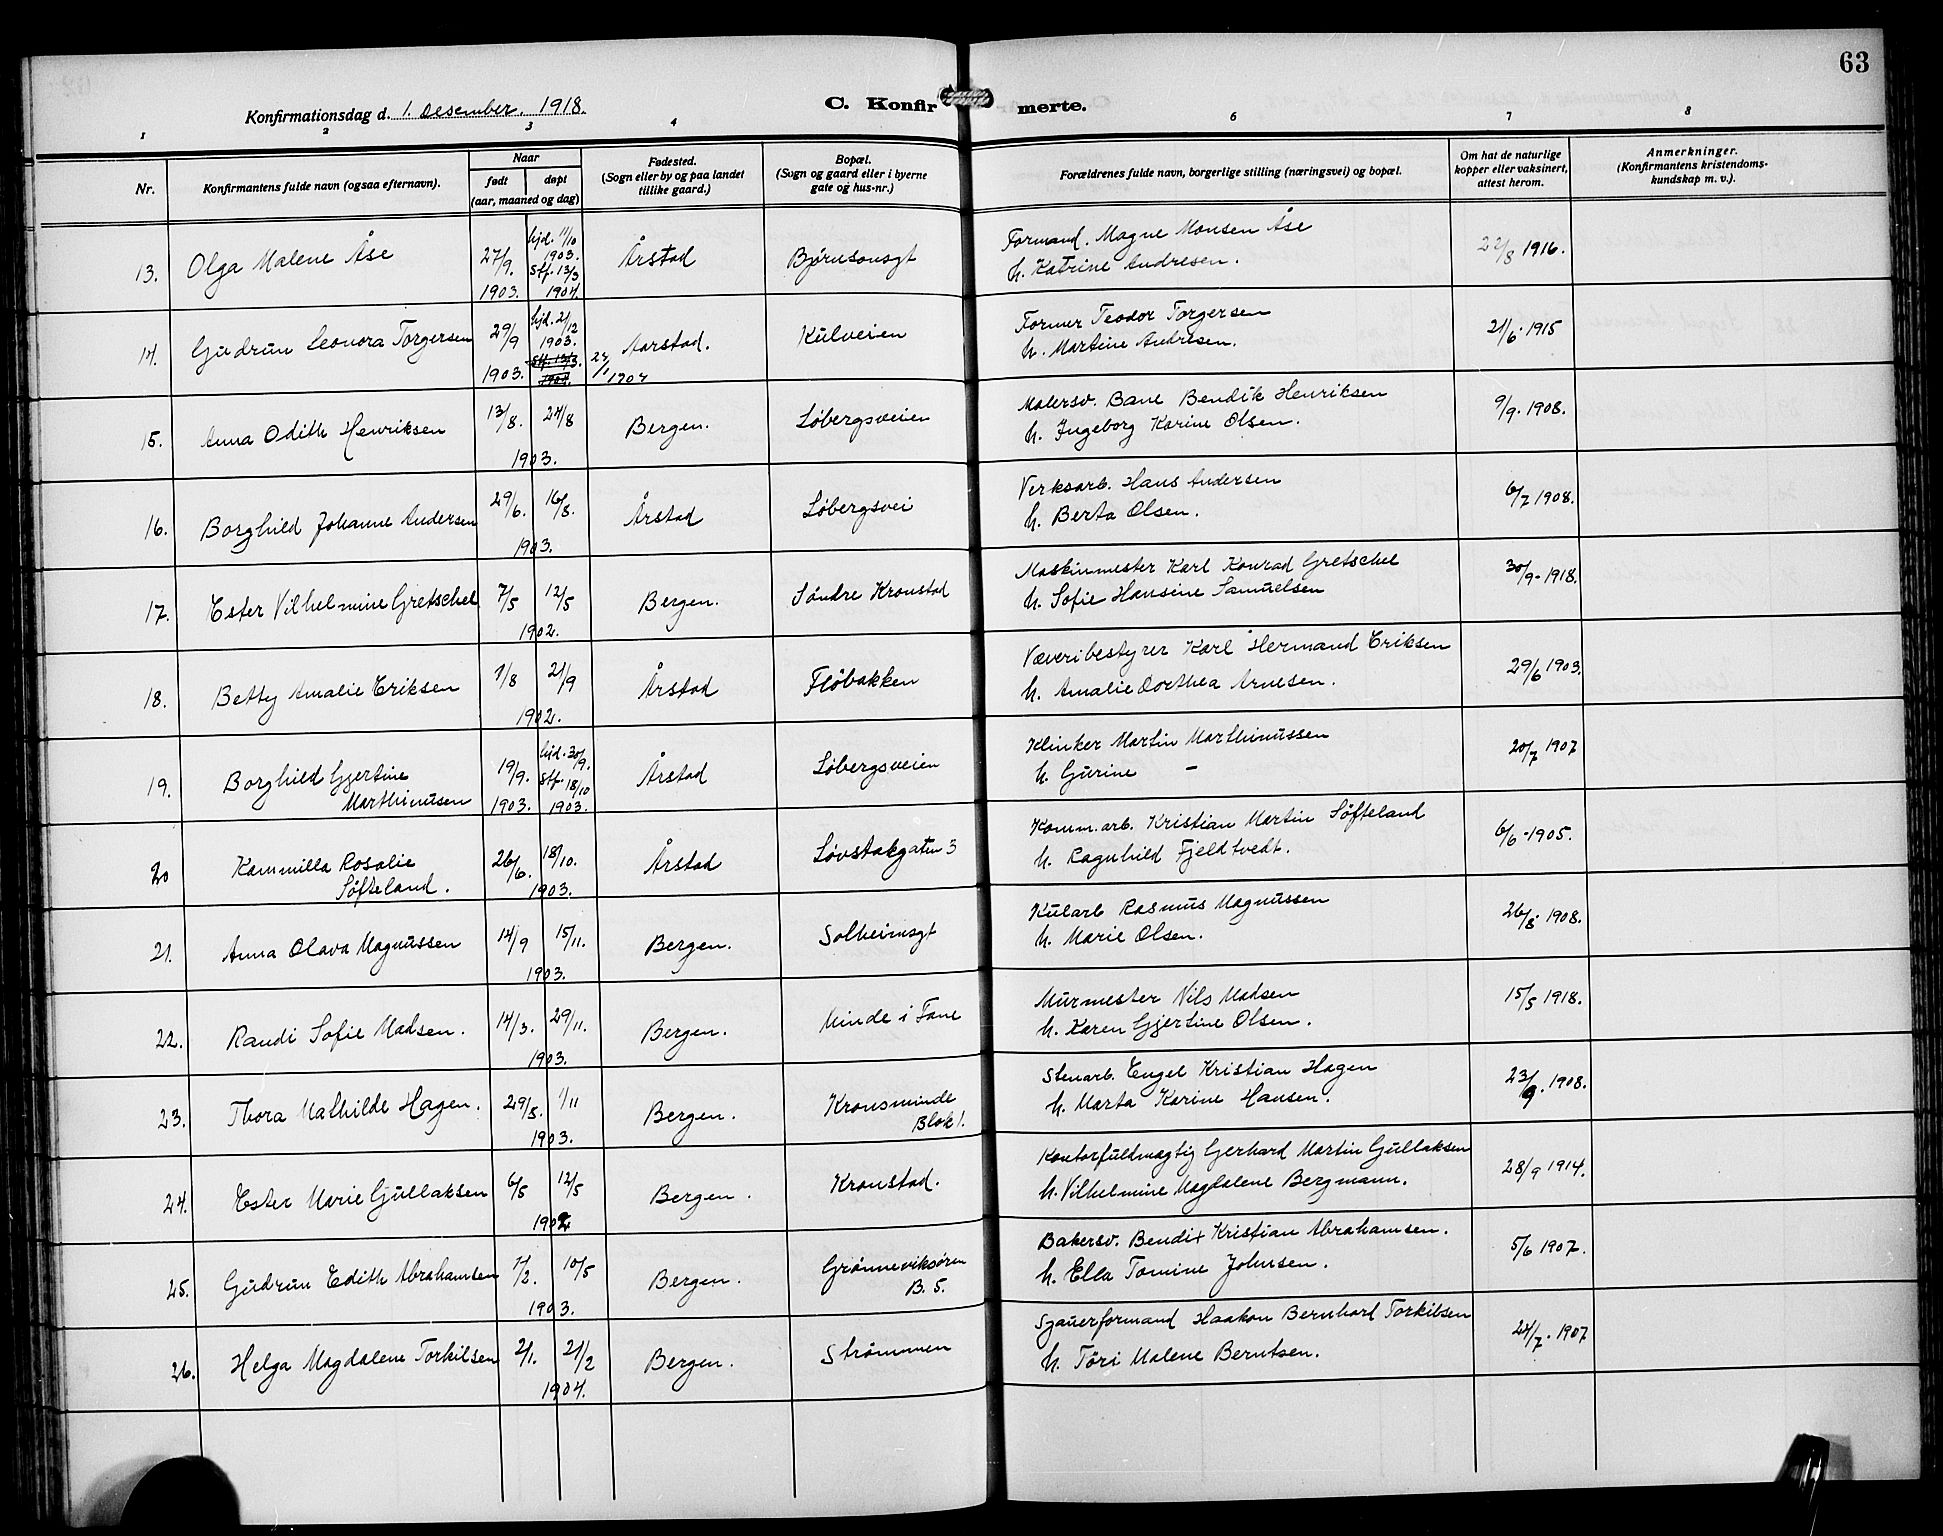 63
Konfirmationsdag d. 1. Desember. 1918.
C. Konfirmerte.
1 2 3 4 6 7 8
Nr.
Konfirmantens fulde navn (ogsaa efternavn).
Naar
født
døpt
(aar, maaned og dag)
Fødested.
(Sogn eller by og paa landet
tillike gaard.)
Bopæl.
(Sogn og gaard eller i byerne
gate og hus-nr.)
Forældrenes fulde navn, borgerlige stilling (næringsvei) og bopæl.
Om hat de naturlige
kopper eller vaksinert,
attest herom.
Anmerkninger.
(Konfirmantens kristendoms-
kundskap m. v.).
13. Olga Malene Åse 27/9. 1903. hjd. 11/10 1903. Stf. 13/3 1904. Årstad Bjørnsonsgt Formand. Magne Monsen Åse 22/8 1916.
h. Katrine Andresen.
14. Gudrun Leonora Torgersen 29/9 1903. hjd. 21/12 1903. Stf. 13/3. 1904. 24/1 1904 Aarstad. Kulveien Former Teodor Torgersen 21/6. 1915
h. Martine Andresen.
15. Anna Odith Henriksen 13/8. 24/8 1903. Bergen. Løbergsveien Malersv. Bane Bendik Henriksen 9/9. 1908.
h. Ingeborg Karine Olsen.
16. Borghild Johanne Andersen 29/6. 16/8. 1903. Årstad Løbergsvei Verksarb. Hans Andersen 6/7 1908.
h. Berta Olsen.
17. Ester Vilhelmine Gretschel 7/5 12/5 1902. Bergen. Søndre Kronstad Maskinmester Karl Konrad Gretschel 30/9-1918.
h. Sofie Hansine Samuelsen
18. Betty Amalie Eriksen 1/8 21/9 1902. Årstad Fløbakken Væveribestyrer Karl Hermand Eriksen 29/6 1903.
h. Amalie Dorthea Arnesen.
19. Borghild Gjertine 19/9. 1903. hjd. 30/9. Stf. 18/10 1903. Årstad Løbergsveien Klinker Martin Marthinussen 20/7 1907
Marthinusen h. Gurine –
20 Kammilla Rosalie 26/6. 18/10. 1903. Årstad Løvstakgaten 3 Komm.arb. Kristian Martin Søfteland 6/6-1905.
Søfteland. h. Ragnhild Fjeldtvedt.
21. Anna Olava Magnussen 14/9 15/11. 1903. Bergen. Solheimsgt Kularb Rasmus Magnussen 26/8. 1908.
h. Marie Olsen.
22. Randi Sofie Madsen. 14/3. 29/11. 1903. Bergen. Minde i Fane Murmester Nils Madsen 15/5 1918.
h. Karen Gjertine Olsen.
23. Thora Mathilde Hagen. 29/8. 1/11 1903. Bergen. Kronsminde Stenarb. Engel Kristian Hagen 23/9. 1908.
Blok 1. h. Marta Karine Hansen.
24. Ester Marie Gullaksen 6/5 12/5 Bergen. Kronstad. Kontorfuldmægtig Gerhard Martin Gullaksen 28/9 1914.
h. Vilhelmine Magdalene Bergmann.
25. Gudrun Edith Abrahamsen 1/2. 10/5 1903. Bergen. Grønneviksøren Bakersv. Bendix Kristian Abrahamsen. 5/6 1907.
B. 5. h. Ella Tomine Johnsen.
26. Helga Magdalene Torkilsen 2/1. 21/2 1904. Bergen. Strømmen Sjauerformand Haakon Bernhard Torkilsen 24/7. 1907
h. Töri Malene Berntsen.